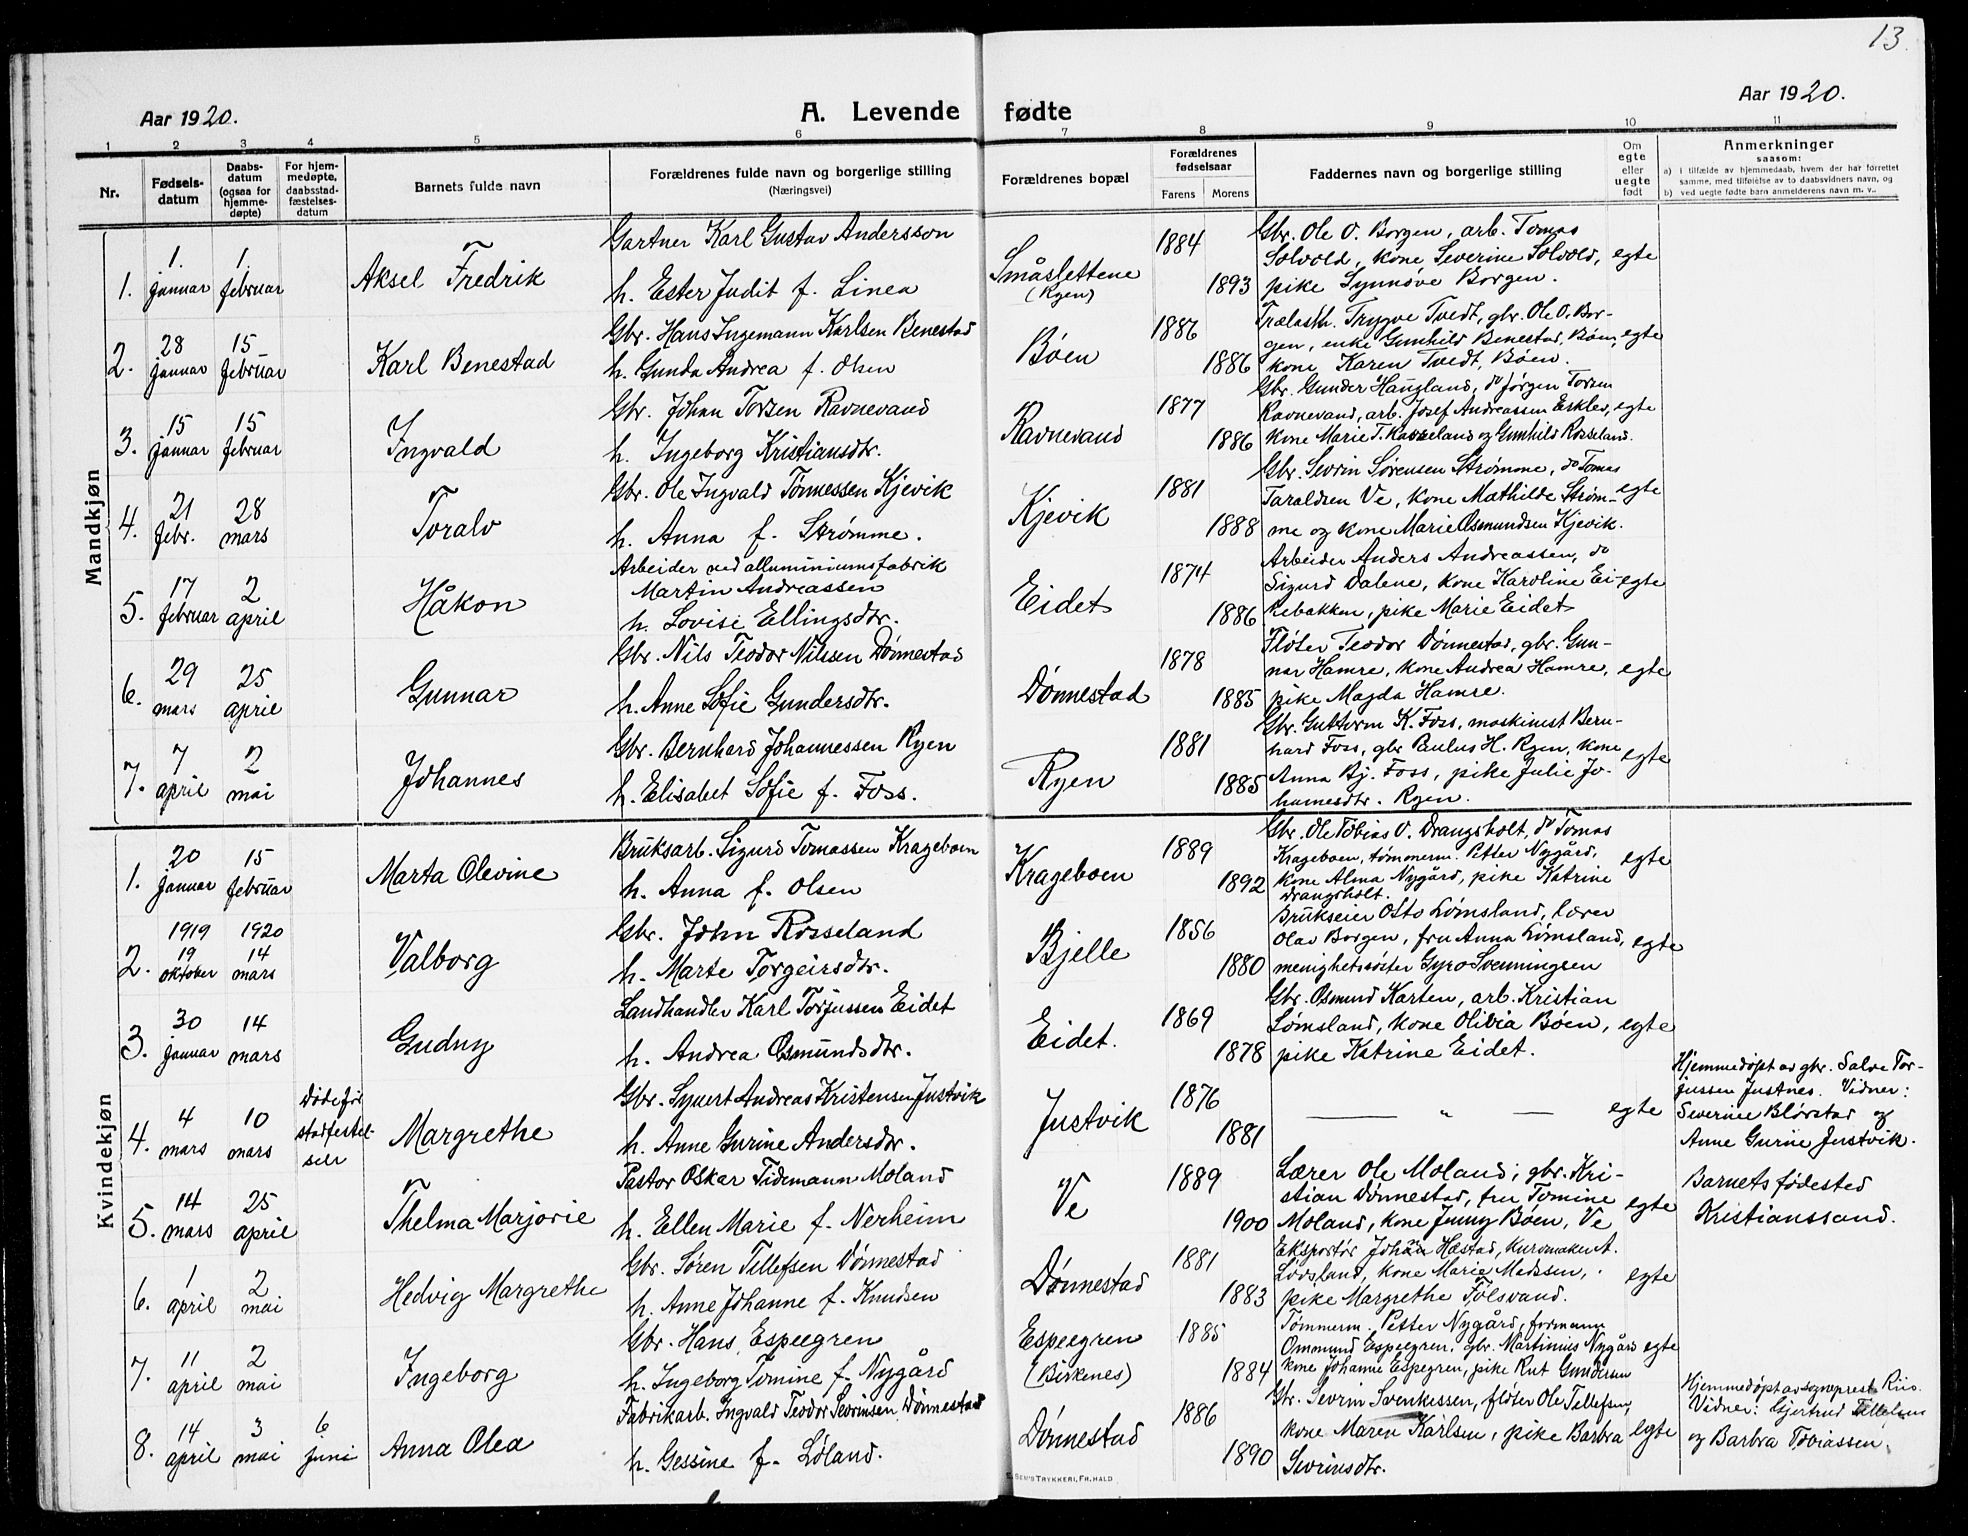 13.
Aar 1920. A. Levende fødte Aar 1920.
1 2 3 4 5 6 7 8 9 10 11
Nr. Fødsels-datum Daabs-datum (ogsaa for hjemme-døpte) For hjem-medøpte, daabsstad-fæstelses-datum Barnets fulde navn Forældrenes fulde navn og borgerlige stilling (Næringsvei) Forældrenes bopæl Forældrenes fødselsaar Farens Morens Faddernes navn og borgerlige stilling Om egte eller uegte født Anmerkninger saasom:
a) i tilfælde av hjemmedaab, hvem der har forrettet samme, med tilføielse av to daabsvidners navn, og
b) ved uegte fødte barn anmelderens navn m. v..
Mandkjøn
Gartner Karl Gustav Andersson 1884 Gbr. Ole O. Borgen, arb. Tomas
1. 1. januar 1. februar Aksel Fredrik Småslettene (Ryen) Solvold, kone Severine Solvold, egte
h. Ester Judit f. Linea 1893 pike Synnøve Borgen.
Gbr. Hans Ingemann Karlsen Benestad 1886 Trælasth. Trygve Tvedt, gbr. Ole O. Bor-
2. 28 januar 15 februar Karl Benestad Bøen gen, enke Gunhild Benestad, Bøen, egte
h. Gunda Andrea f. Olsen 1886 kone Karen Tvedt, Bøen.
Gbr. Johan Torsen Ravnevand 1877 Gbr. Gunder Haugland, do Jørgen Torsen
3. 15 januar 15 februar Ingvald Ravnevand Ravnevand, arb. Josef Andreassen Esklev, egte
h. Ingeborg Kristiansdtr. 1886 kone Marie T. Rosseland og Gunhild Rosseland.
Gbr. Ole Ingvald Tønnessen Kjevik 1881 Gbr. Sevrin Sørensen Strømme, do Tomas
4. 21 febr. 28 mars Toralv Kjevik Taraldsen Ve, kone Mathilde Strøm- egte
h. Anna f. Strømme. 1888 me og kone Marie Osmundsen Kjevik.
Arbeider ved alluminiumsfabrik 1874 Arbeider Anders Andreassen, do
5. 17 februar 2 april Håkon Martin Andreassen Eidet Sigurd Dalene, kone Karoline Ei- egte
h. Lovise Ellingsdtr. 1886 kebakken, pike Marie Eidet
Gbr. Nils Teodor Nilssen Dønnestad 1878 Fløter Teodor Dønnestad, gbr. Gun-
6. 29 mars 25 april Gunnar Dønnestad nar Hamre, kone Andrea Hamre, egte
h. Anne Sofie Gundersdtr. 1885 pike Magda Hamre.
Gbr. Bernhard Johannessen Ryen 1881 Gbr. Guttorm K. Foss, maskinist Bern-
7. 7 april 2 mai Johannes Ryen hard Foss, gbr Paulus H. Ryen, kone egte
h. Elisabet Sofie f. Foss. 1885 Anna Bj. Foss, pike Julie Jo-
hannesdtr. Ryen.
Kvindekjøn
Bruksarb. Sigurd Tomassen Krageboen 1889 Gbr. Ole Tobias O. Drangsholt, do Tomas
1. 20 januar 15 februar Marta Olevine Krageboen Krageboen, tømmerm. Petter Nygård, egte
h. Anna f. Olsen 1892 kone Alma Nygård, pike Katrine
Drangsholt.
1919 1920 Gbr. John Rosseland 1856 Brukseier Otto Lømsland, lærer
2. 19 oktober 14 mars Valborg Bjelle Olav Borgen, fru Anna Lømsland, egte
h. Marte Torgeirsdtr. 1880 menighetssøster Gyro Svenningsen
Landhandler Karl Torjussen Eidet 1869 Gbr. Osmund Karten, arb. Kristian
3. 30 januar 14 mars Gudny Eidet. Lømsland, kone Olivia Bøen, egte
h. Andrea Osmundsdtr. 1878 pike Katrine Eidet.
Gbr. Syvert Andreas Kristensen Justvik 1876 Hjemmedøpt av gbr. Salve Tor-
4. 4 mars 10 mars Døde før stadfestel-sen Margrethe Justvik — " — egte jussen Justnes. Vidner:
h. Anne Gurine Andersdtr. 1881 Severine Blørstad og
Anne Gurine Justvik.
Pastor Oskar Tidemann Moland 1889 Lærer Ole Moland, gbr. Kri- Barnets fødested
5. 14 mars 25 april Thelma Marjorie Ve stian Dønnestad, fru Tomine egte Kristianssand.
h. Ellen Marie f. Nerheim 1900 Moland, kone Jenny Bøen, Ve
Gbr. Søren Tellefsen Dønnestad 1881 Eksportør Johan Hæstad, kurvmaker A.
6. 1 april 2 mai Hedvig Margrethe Dønnestad Lodsland, kone Marie Madssen, egte
h. Anne Johanne f. Knudsen 1883 pike Margrethe Tolsvand.
Gbr. Hans Espegren 1885 Tømmerm. Petter Nygård, formann
7. 11 april 2 mai Ingeborg Espegren (Birkenes) Ommund Espegren, gbr. Martinius Nygård egte
h. Ingeborg Tomine f. Nygård 1884 kone Johanne Espegren, pike Rut Gundersen
Fabrikarb. Ingvald Teodor Sevrinsen Dønnestad 1886 Gbr. Sevrin Svenkessen, fløter Ole Tellefsen, Hjemmedøpt av sogneprest Riis.
8. 14 april 3 mai 6 juni Anna Olea Dønnestad kone Maren Karlsen, pike Barbra egte Vidner: Gjertrud Tellefsen
h. Gessine f. Løland. 1890 Sevrinsdtr. og Barbra Tobiassen.
SEM'S TRYKKERI, FR.HALD